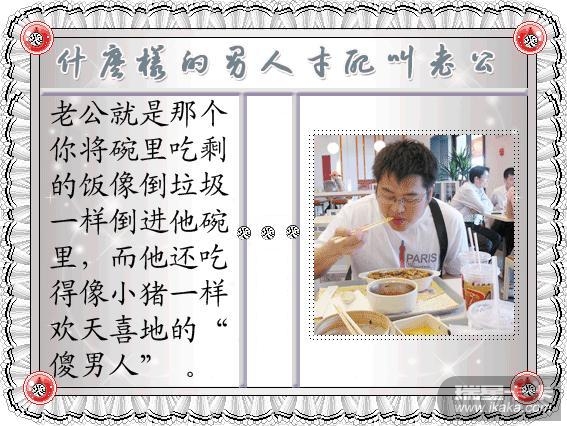 什麼樣的男人才配叫老公
老公就是那个
你将碗里吃剩
的饭像倒垃圾
一样倒进他碗
里，而他还吃
得像小猪一样
欢天喜地的“
傻男人” 。
PARIS
www.ikaka.com